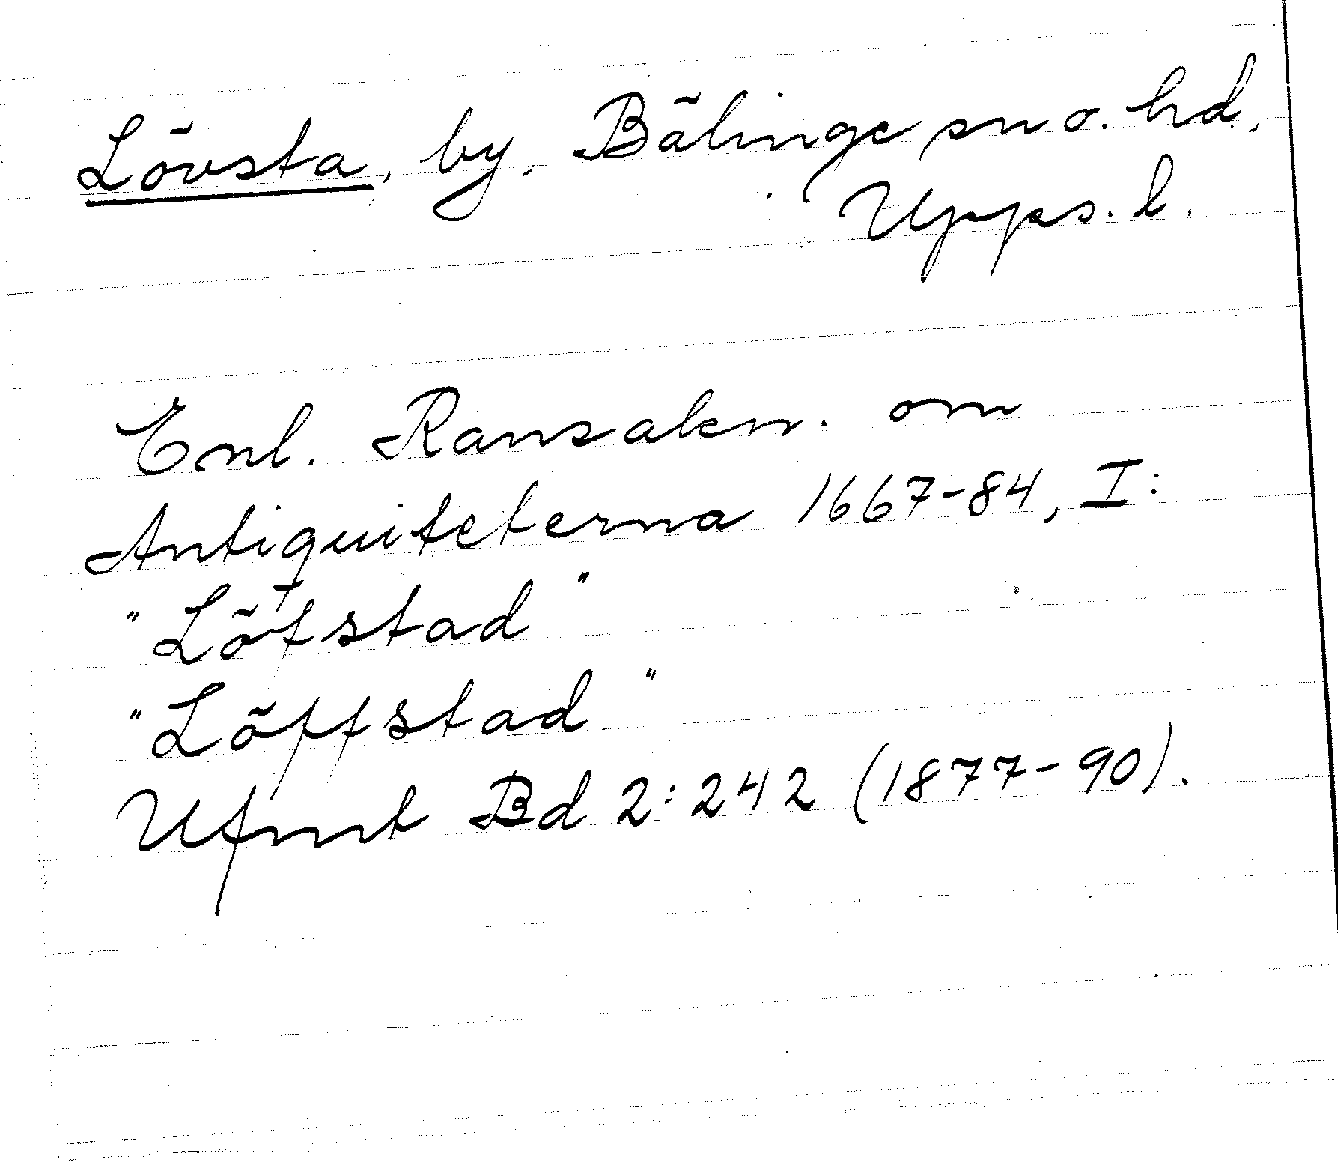 Lövsta, by, Bälinge sn o. hd,
Upps. l.
Enl. Ransakn. om
Antiquiteterna 1667-84, I:
"Löfstad"
"Löffstad"
Ufmt Bd 2:242 (1877-90).